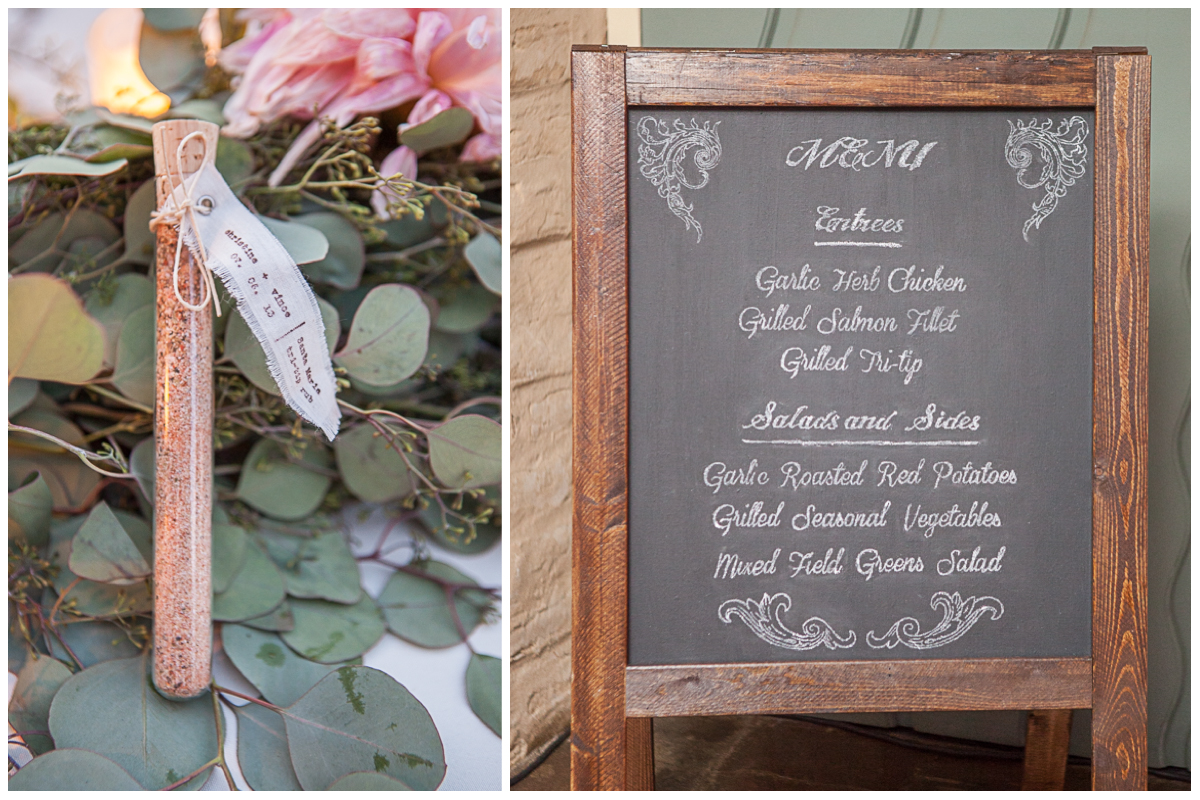 christine + vince
07. 06. 13
Santa Maria
tri-tip rub
MENU
Entrees
Garlic Herb Chicken
Grilled Salmon Fillet
Grilled Tri-tip
Salads and Sides
Garlic Roasted Red Potatoes
Grilled Seasonal Vegetables
Mixed Field Greens Salad